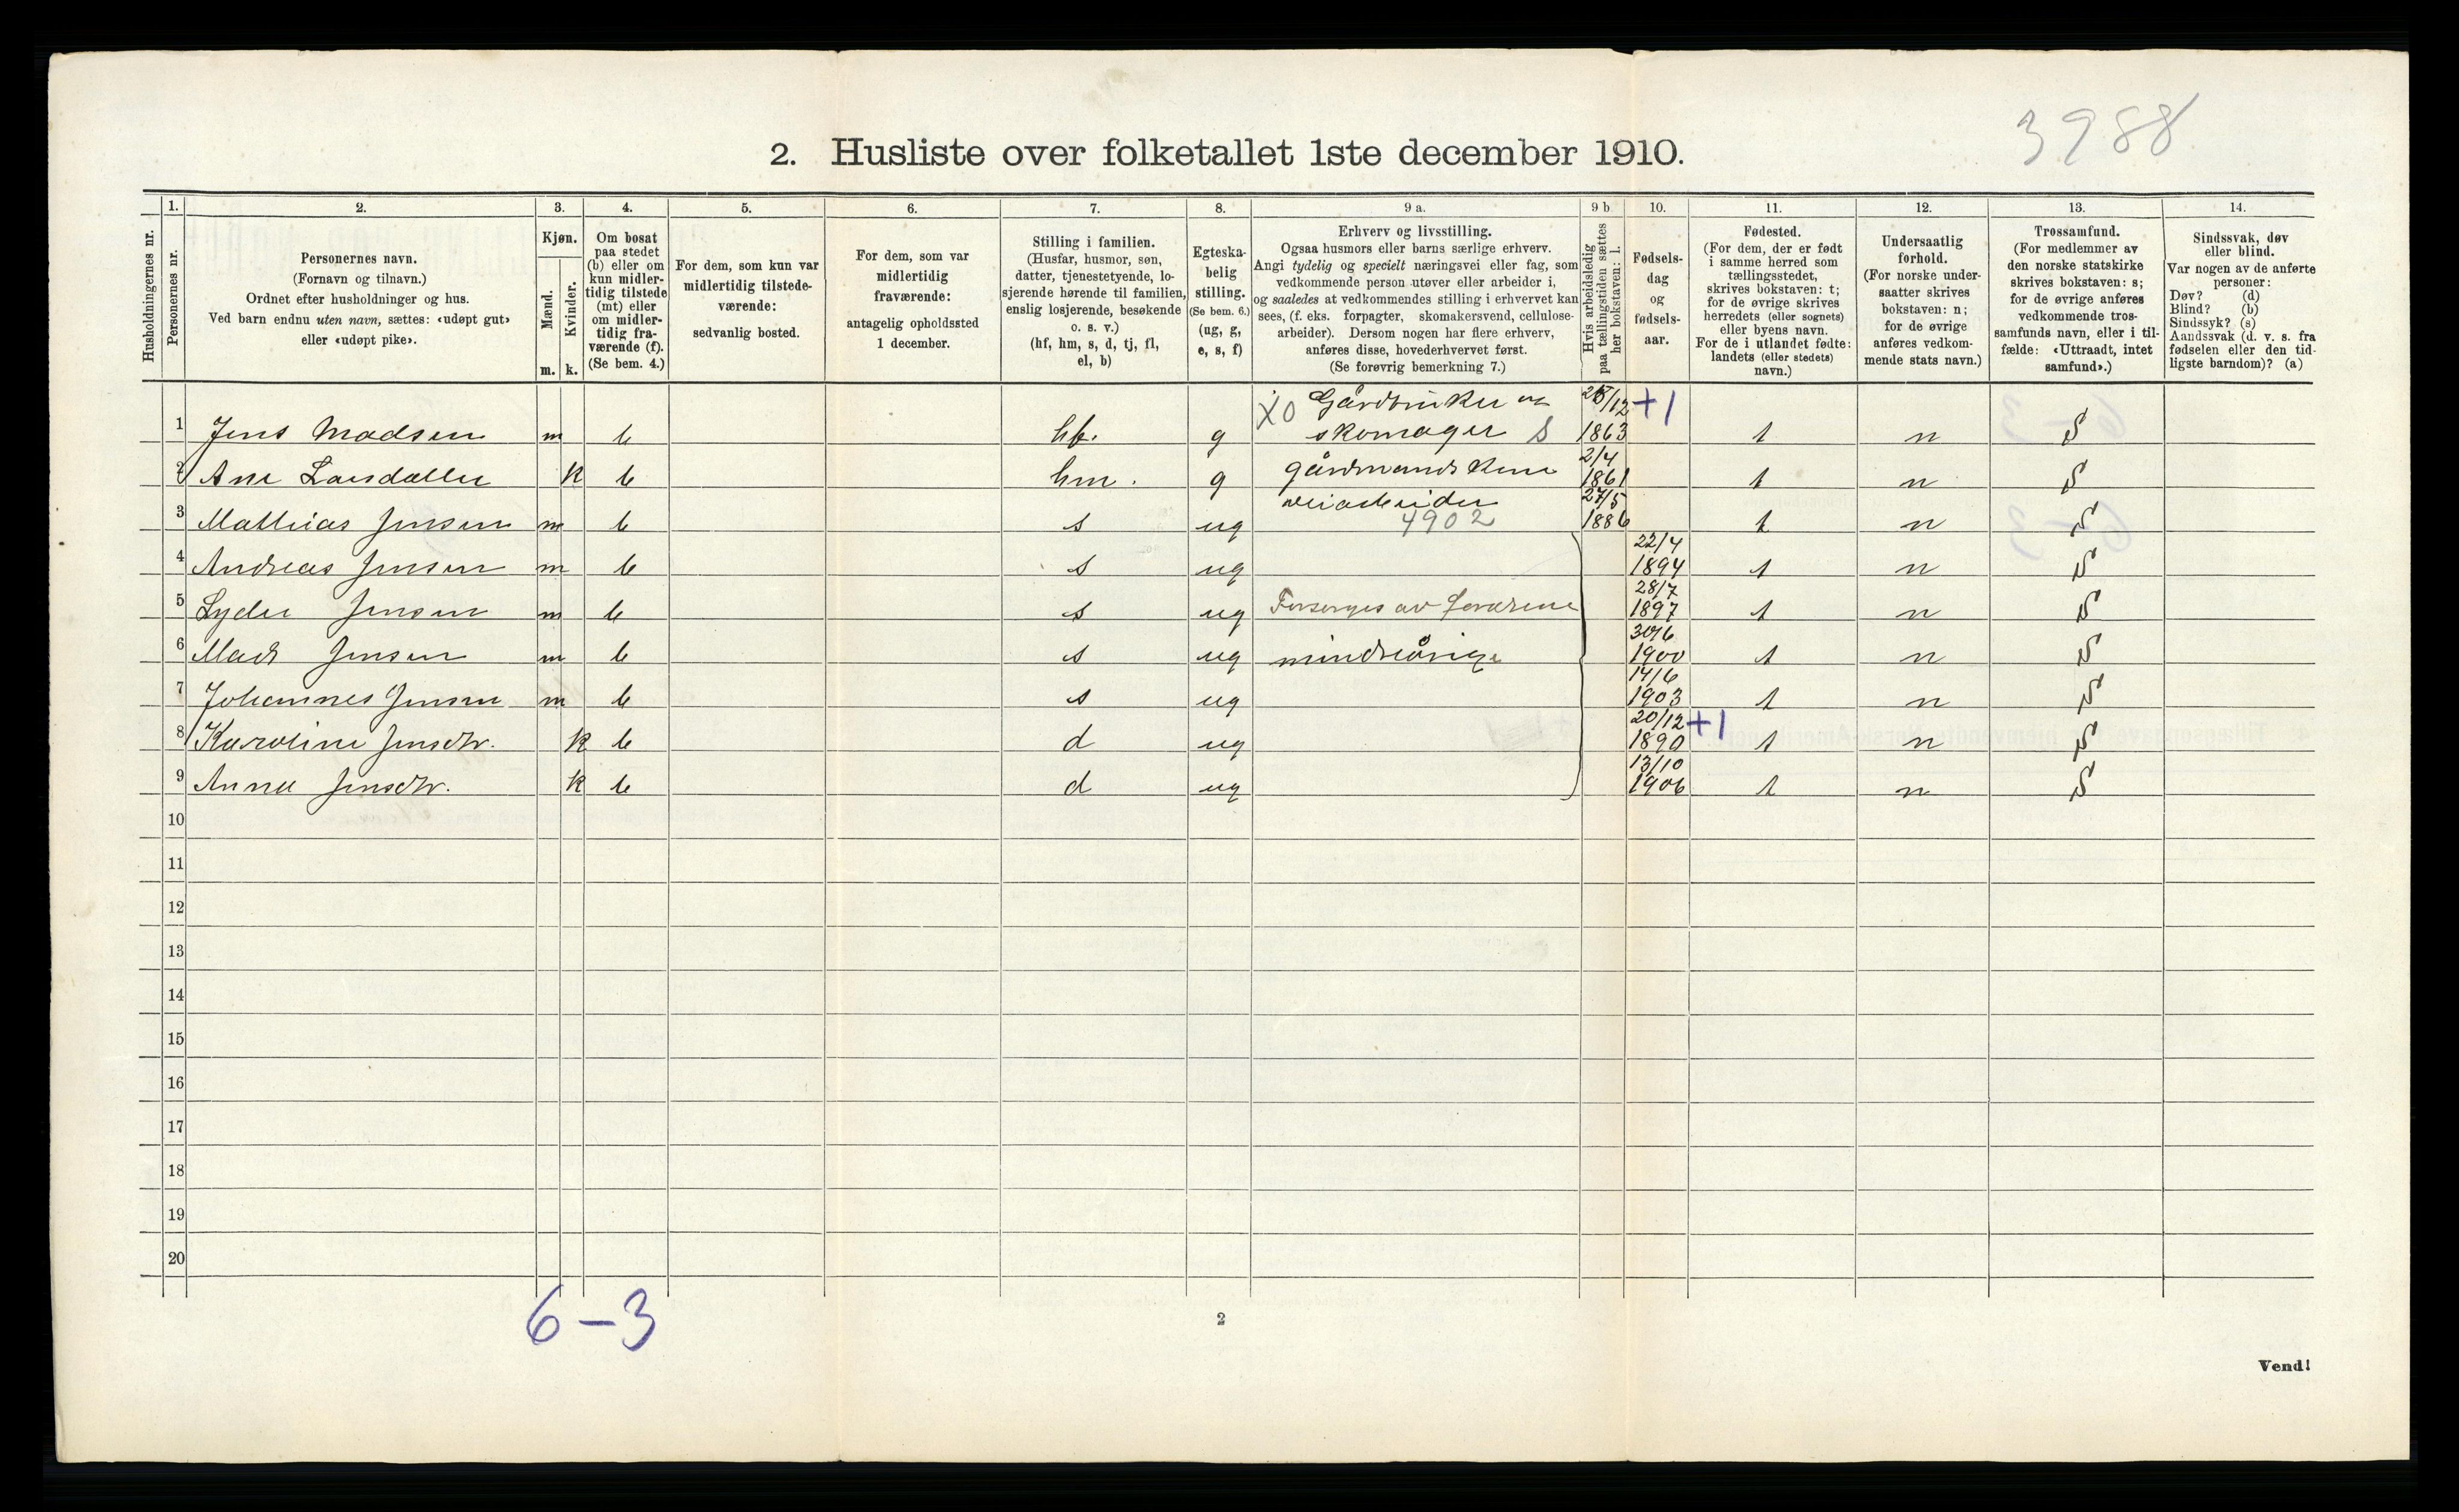 3988
2. Husliste over folketallet 1ste december 1910.
Husholdningernes nr.
1. Personernes nr.
2. Personernes navn.
(Fornavn og tilnavn.)
Ordnet efter husholdninger og hus.
Ved barn endnu uten navn, sættes: «udøpt gut»
eller «udøpt pike».
3. Kjøn.
Mænd. m.
Kvinder. k.
4. Om bosat
paa stedet
(b) eller om
kun midler-
tidig tilstede
(mt) eller
om midler-
tidig fra-
værende (f).
(Se bem. 4.)
5. For dem, som kun var
midlertidig tilstede-
værende:
sedvanlig bosted.
6. For dem, som var
midlertidig
fraværende:
antagelig opholdssted
1 december.
7. Stilling i familien.
(Husfar, husmor, søn,
datter, tjenestetyende, lo-
sjerende hørende til familien,
enslig losjerende, besøkende
o. s. v.)
(hf, hm, s, d, tj, fl,
el, b)
8. Egteska-
belig
stilling.
(Se bem. 6.)
(ug, g,
e, s, f)
9 a. Erhverv og livsstilling.
Ogsaa husmors eller barns særlige erhverv.
Angi tydelig og specielt næringsvei eller fag, som
vedkommende person utøver eller arbeider i,
og saaledes at vedkommendes stilling i erhvervet kan
sees, (f. eks. forpagter, skomakersvend, cellulose-
arbeider). Dersom nogen har flere erhverv,
anføres disse, hovederhvervet først.
(Se forøvrig bemerkning 7.)
9 b Hvis arbeidsledig
paa tællingstiden sættes
her bokstaven: l.
10. Fødsels-
dag
og
fødsels-
aar.
11. Fødested.
(For dem, der er født
i samme herred som
tællingsstedet,
skrives bokstaven: t;
for de øvrige skrives
herredets (eller sognets)
eller byens navn.
For de i utlandet fødte:
landets (eller stedets)
navn.)
12. Undersaatlig
forhold.
(For norske under-
saatter skrives
bokstaven: n;
for de øvrige
anføres vedkom-
mende stats navn.)
13. Trossamfund.
(For medlemmer av
den norske statskirke
skrives bokstaven: s;
for de øvrige anføres
vedkommende tros-
samfunds navn, eller i til-
fælde: «Uttraadt, intet
samfund».)
14. Sindssvak, døv
eller blind.
Var nogen av de anførte
personer:
Døv? (d)
Blind? (b)
Sindssyk? (s)
Aandssvak (d. v. s. fra
fødselen eller den tid-
ligste barndom)? (a)
1 Jens Madsen m b hf. g XO Gårdbruker og skomager S /12 1863 +1 t n S
2 Ane Larsdatter k b hm. g gårdmands kone 2/4 1861 t n S
3 Mathias Jensen m b s ug veiarbeider 4902 27/5 1886 t n S
4 Andreas Jensen m b s ug 22/4 1894 t n S
5 Lyder Jensen m b s ug Forsørges av forældrene 28/7 1897 t n S
6 Mads Jensen m b s ug mindreårige 30/6 1900 t n S
7 Johannes Jensen m b s ug 14/6 1903 t n S
8 Karoline Jensdtr. k b d ug 20/12 1890 +1 t n S
9 Anna Jensdtr. k b d ug 13/10 1906 t n S
10
11
12
13
14
15
16
17
18
19
20
6-3
2
Vend!